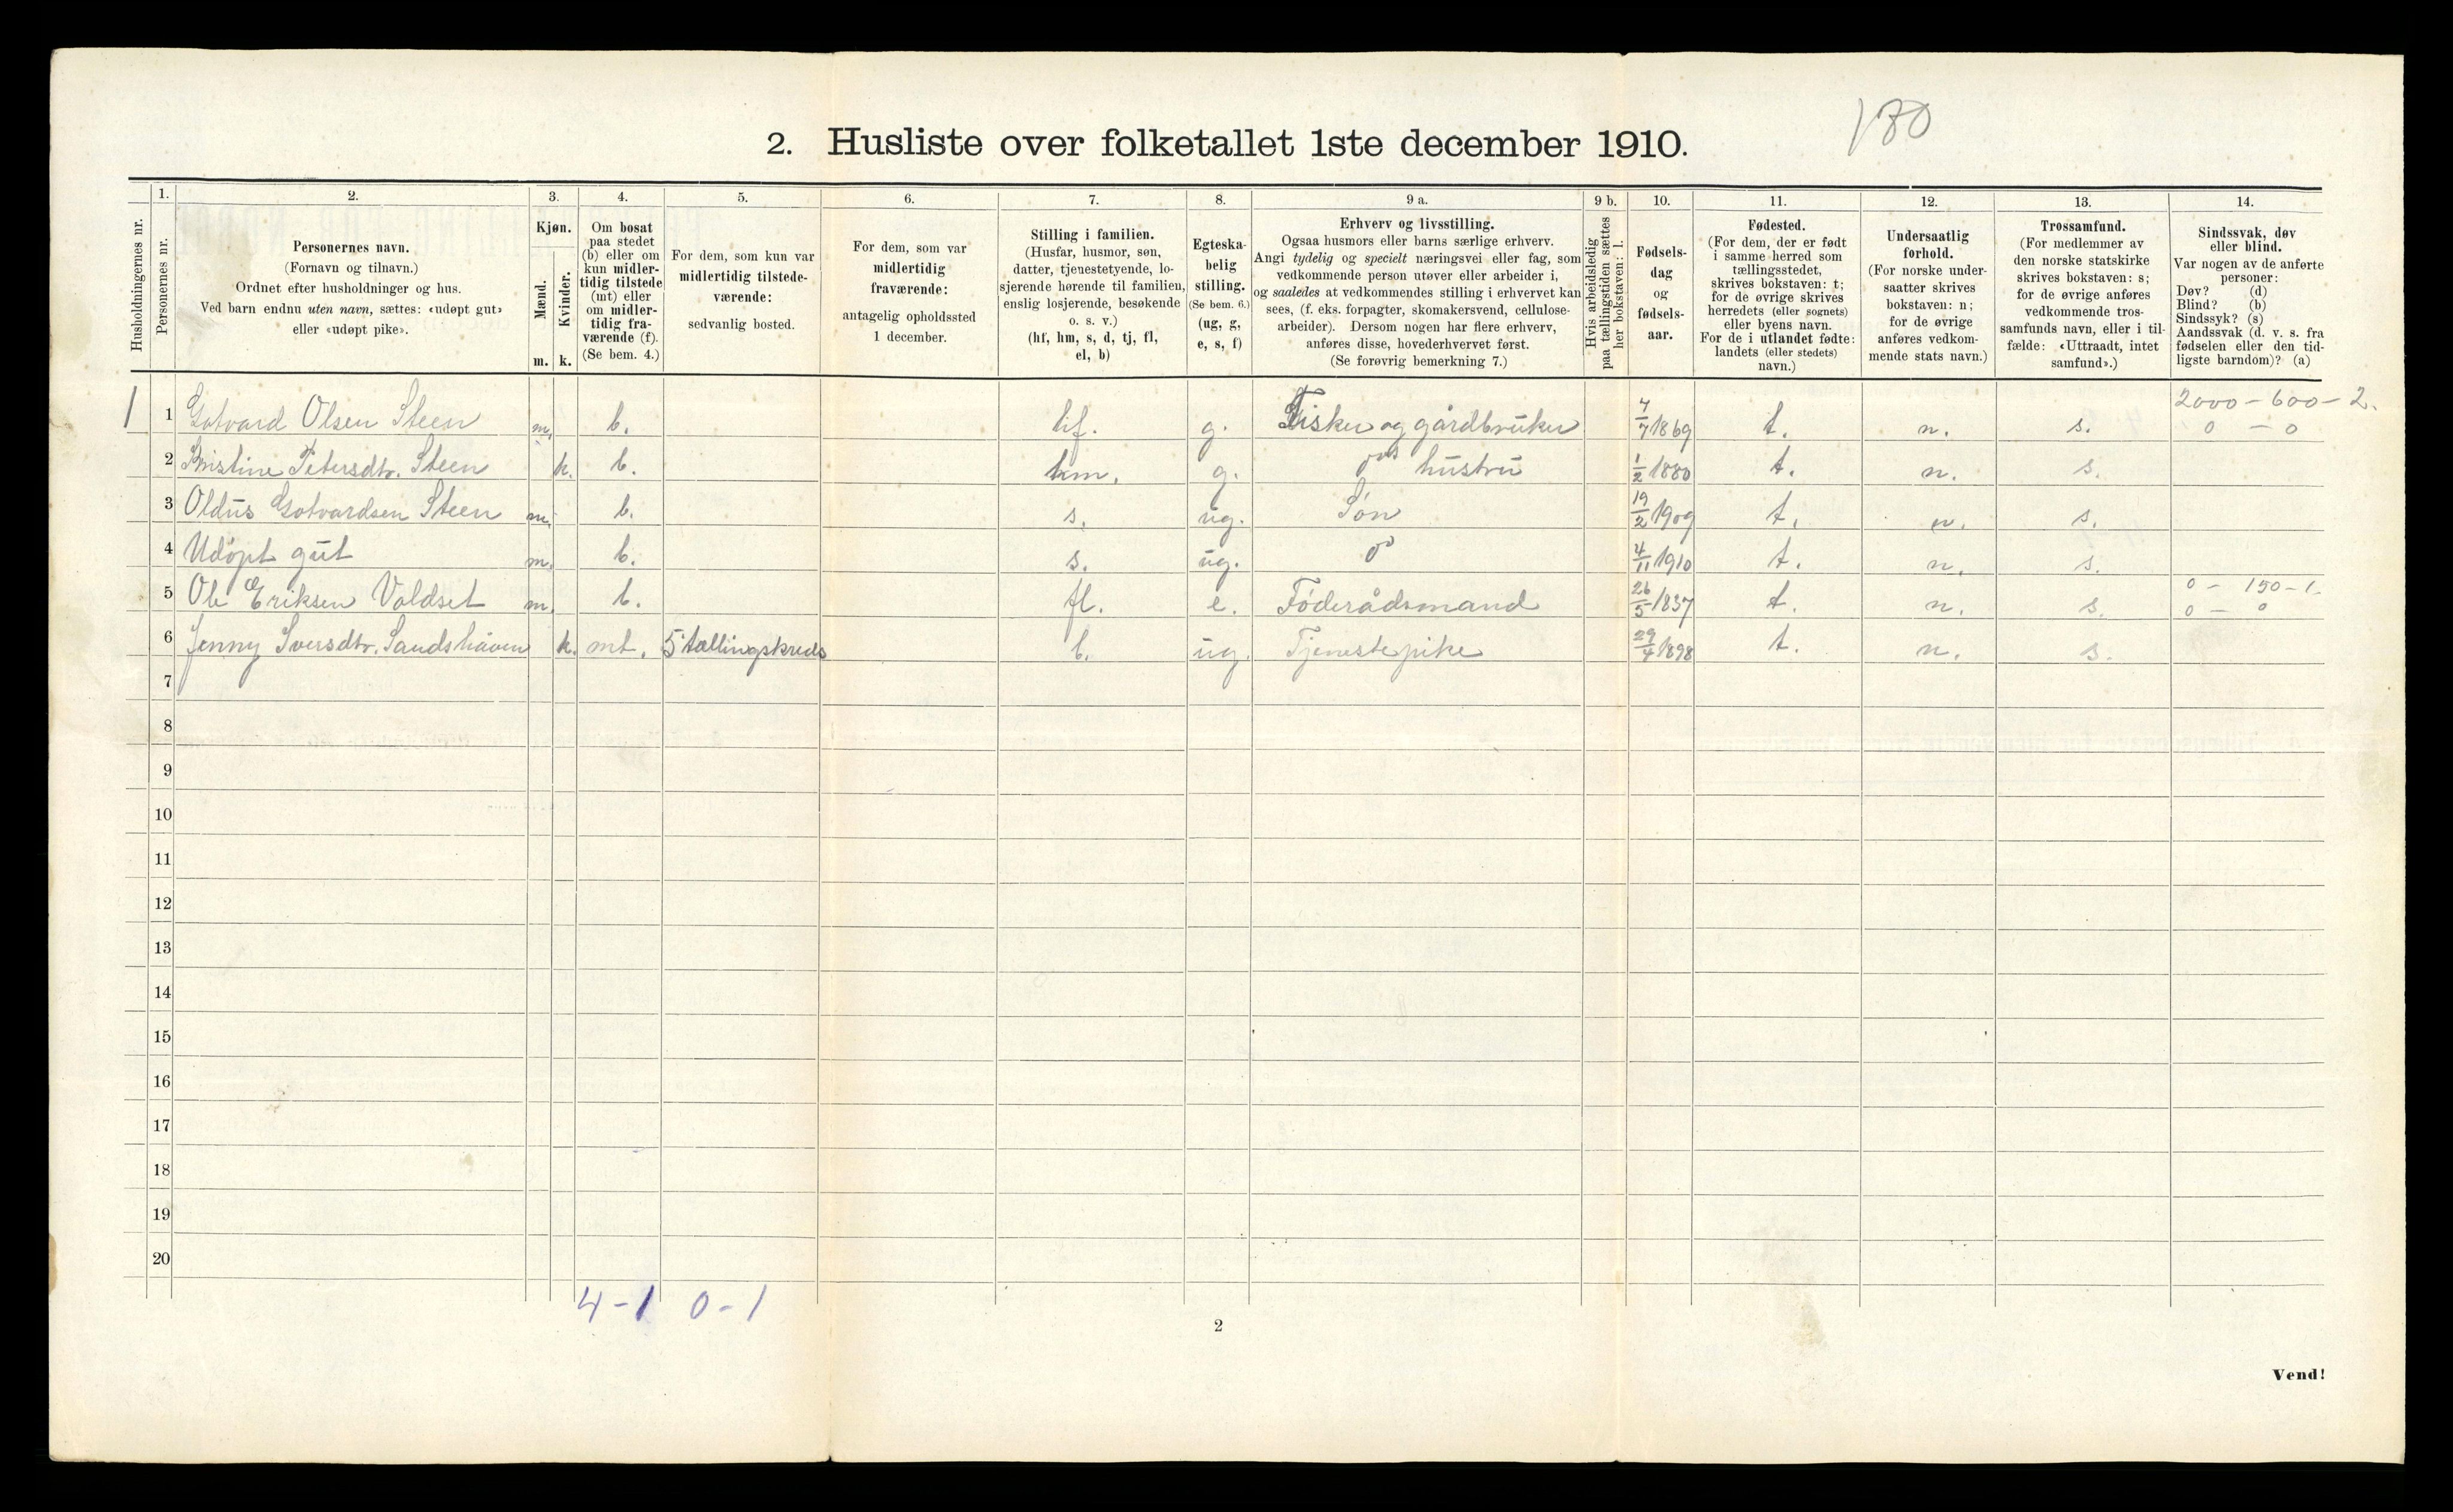 180
2. Husliste over folketallet 1ste december 1910.
Husholdningernes nr.
1.
Personernes nr.
2.
Personernes navn.
(Fornavn og tilnavn.)
Ordnet efter husholdninger og hus.
Ved barn endnu uten navn, sættes: «udøpt gut»
eller «udøpt pike».
3.
Kjøn.
Mænd.
Kvinder.
m. k.
4.
Om bosat
paa stedet
(b) eller om
kun midler-
tidig tilstede
(mt) eller
om midler-
tidig fra-
værende (f).
(Se bem. 4.)
5.
For dem, som kun var
midlertidig tilstede-
værende:
sedvanlig bosted.
6.
For dem, som var
midlertidig
fraværende:
antagelig opholdssted
1 december.
7.
Stilling i familien.
(Husfar, husmor, søn,
datter, tjenestetyende, lo-
sjerende hørende til familien,
enslig losjerende, besøkende
o. s. v.)
(hf, hm, s, d, tj, fl,
el, b)
8.
Egteska-
belig
stilling.
(Se bem. 6.)
(ug, g,
e, s, f)
9 a.
Erhverv og livsstilling.
Ogsaa husmors eller barns særlige erhverv.
Angi tydelig og specielt næringsvei eller fag, som
vedkommende person utøver eller arbeider i,
og saaledes at vedkommendes stilling i erhvervet kan
sees, (f. eks. forpagter, skomakersvend, cellulose-
arbeider). Dersom nogen har flere erhverv,
anføres disse, hovederhvervet først.
(Se forøvrig bemerkning 7.)
9 b.
Hvis arbeidsledig
paa tællingstiden sættes
her bokstaven: l.
10.
Fødsels-
dag
og
fødsels-
aar.
11.
Fødested.
(For dem, der er født
i samme herred som
tællingsstedet,
skrives bokstaven: t;
for de øvrige skrives
herredets (eller sognets)
eller byens navn.
For de i utlandet fødte:
landets (eller stedets)
navn.)
12.
Undersaatlig
forhold.
(For norske under-
saatter skrives
bokstaven: n;
for de øvrige
anføres vedkom-
mende stats navn.)
13.
Trossamfund.
(For medlemmer av
den norske statskirke
skrives bokstaven: s;
for de øvrige anføres
vedkommende tros-
samfunds navn, eller i til-
fælde: «Uttraadt, intet
samfund».)
14.
Sindssvak, døv
eller blind.
Var nogen av de anførte
personer:
Døv? (d)
Blind? (b)
Sindssyk? (s)
Aandssvak (d. v. s. fra
fødselen eller den tid-
ligste barndom)? (a)
2000 - 600 - 2.
1 1 Gotvard Olsen Steen m. b. hf. g. Fisker og gårdbruker 7/7 1869 t. n. s. 0 - 0
2 Kristine Petersdtr. Steen k. b. hm. g. do hustru 1/2 1880 t. n. s.
3 Oldus Gotvardsen Steen m. b. s. ug. Søn 19/2 1909 t. n. s.
4 Udøpt gut m. b. s. ug. do 4/11 1910 t. n. s.
0 - 150 - 1.
5 Ole Eriksen Voldset m. b. fl. e. Föderådsmand 26/5 1837 t. n. s. 0 - 0
6 Jenny Iversdtr. Sandshåven k. mt. 5 tællingskreds b. ug. Tjenestepike 29/4 1898 t. n. s.
7
8
9
10
11
12
13
14
15
16
17
18
19
20
4-1 0-1
2
Vend!